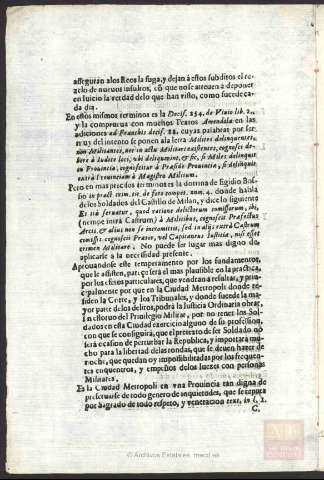 asseguràn alos Reos la fuga, y dejan à estos subditos el re-
zelo de nuevos insultos, cõ que no se atreuen a deponer
en juicio la verdad delo que han visto, como sucede ca-
da dia.
En estos mismos terminos es la Decis. 254. de Viuio lib. 2.,
y la comprueua con muchos Textos Amendola en las
adiciones ad Franchis decis. 88. cuyas palabras por ser
muy del intento se ponen ala letra Milites delinquentes,
non Militantes, nec in actu Militari existentes, cognosci de-
bere à Iudice loci, vbi delinquunt, & sic, si Miles delinquit
in Prouincia, cognoscitur à Præside Prouinciæ, si delinquit
extrà Prouinciam à Magistro Militum.
Pero en mas precisos terminos es la doctrina de Egidio Bos-
sio in pract. crim. tit. de foro compet. num. 4. donde habla
de los Soldados del Castillo de Milan, y dice lo siguiente
Et ità seruatur, quod ratione delictorum commissorum, ibi,
(nempe intrà Castrum) à Militibus, cognoscit Præfectus
Arcis, & alius non se intromittit, sed in alijs extrà Castrum
commissis cognoscit Prætor, vel Capitaneus Iustitiæ, nisi esset
crimen Militare. No puede ser lugar mas digno de
aplicarse à la necesidad presente.
Aprouandose este temperamento por los fundamentos,
que le assisten, parece serà el mas plausible en la practica,
por los casos particulares, que vendran à resultar, y prin-
cipalmente por que en la Ciudad Metropoli donde re-
siden la Corte, y los Tribunales, y donde sucede la ma-
yor parte delos delitos, podrà la Justicia Ordinaria obrar,
sin estoruo del Priuilegio Militar, por no tener los Sol-
dados en esta Ciudad exercicio alguno de su profession,
con que se conseguirà, que el pretexto de ser Soldado no
serà ocasion de perturbar la Republica, y importarà mu-
cho para la libertad delas rondas, que se deuen hazer de
noche, que quedan oy impossibilitadas por los frequen-
tes encuentros, y empeños delos luezes con personas
Militares.
Es la Ciudad Metropoli en vna Prouincia tan digna de
preseruarse de todo genero de inquietudes, que se reputa
por Sagrado de todo respeto, y veneracion text. in l. 1.
C.
© Archivos Estatales, mecd.es